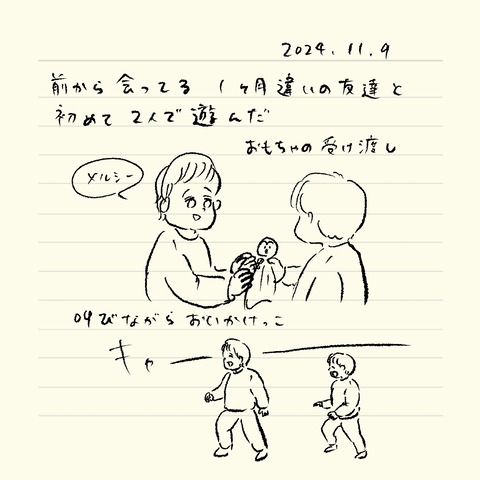 2024.11.9
前から会ってる 1ヶ月違いの友達と
初めて2人で遊んだ
おもちゃの受け渡し
メルシー
叫びながら おいかけっこ
キャー